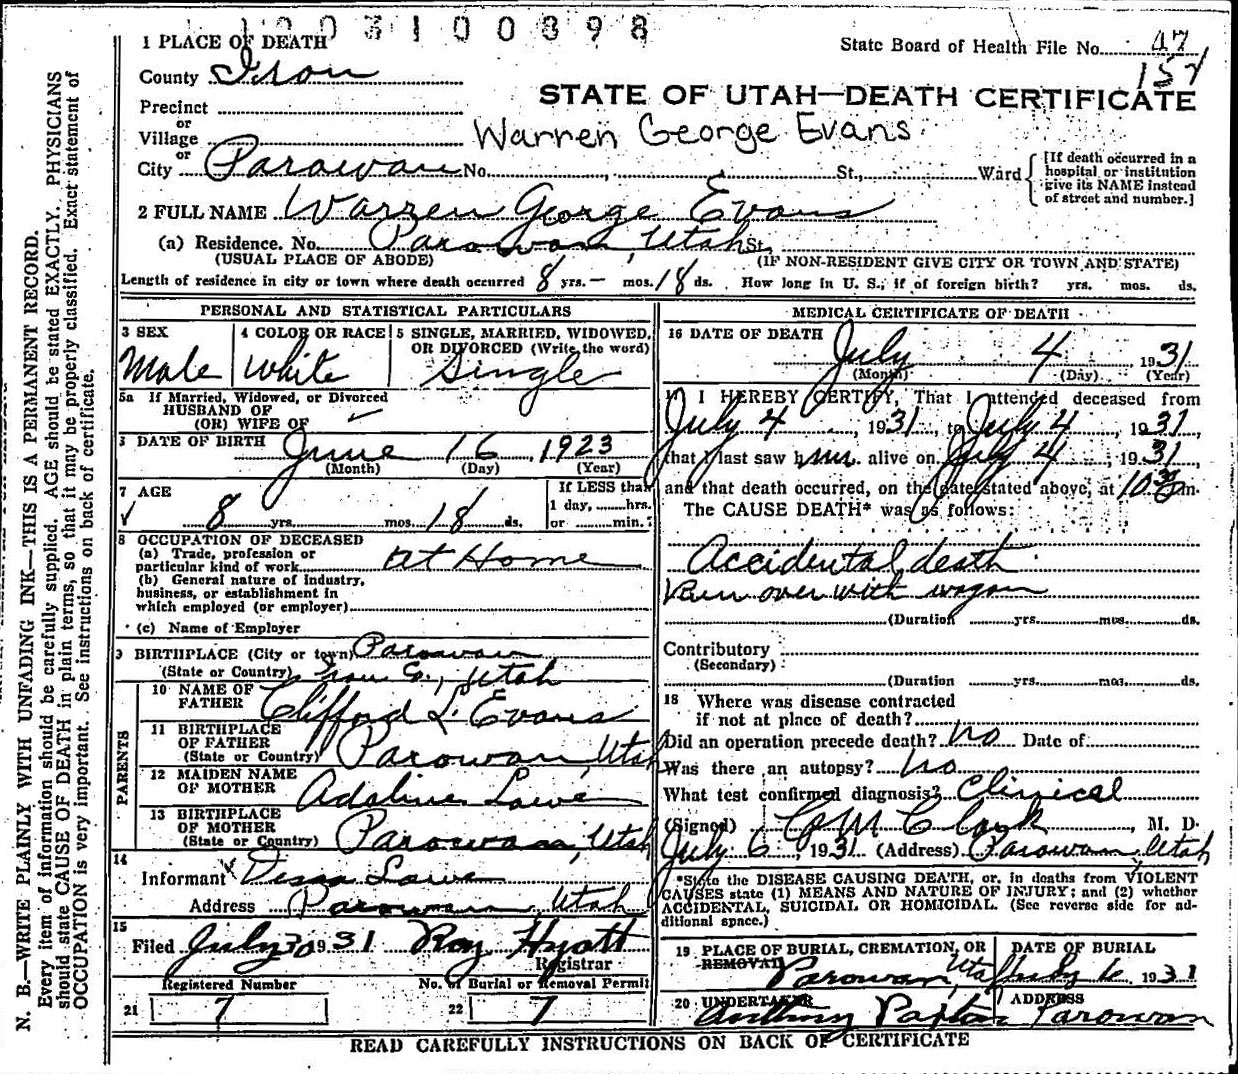 1003100898
1 PLACE OF DEATH
State Board of Health File No. 47
157
County Iron
STATE OF UTAH—DEATH CERTIFICATE
Precinct
or
Village
Warren George Evans
or
City Parowan No. , St., Ward
[If death occurred in a
hospital or institution
give its NAME instead
of street and number.]
2 FULL NAME Warren George Evans
(a) Residence. No. Parowan, Utah St.,
(USUAL PLACE OF ABODE) (IF NON-RESIDENT GIVE CITY OR TOWN AND STATE)
Length of residence in city or town where death occurred 8 yrs. – mos. 18 ds. How long in U. S., if of foreign birth? yrs. mos. ds.
PERSONAL AND STATISTICAL PARTICULARS
3 SEX
Male
4 COLOR OR RACE
White
5 SINGLE, MARRIED, WIDOWED,
OR DIVORCED (Write the word)
Single
5a If Married, Widowed, or Divorced
HUSBAND OF
(OR) WIFE OF
DATE OF BIRTH June 16, 1923
(Month) (Day) (Year)
7 AGE
8 yrs. mos. 18 ds.
If LESS than
1 day, hrs.
or min.?
8 OCCUPATION OF DECEASED
(a) Trade, profession or
particular kind of work At Home
(b) General nature of industry,
business, or establishment in
which employed (or employer)
(c) Name of Employer
9 BIRTHPLACE (City or town) Parowan
(State or Country) Iron Co., Utah
PARENTS
10 NAME OF
FATHER Clifford L. Evans
11 BIRTHPLACE
OF FATHER
(State or Country) Parowan, Utah
12 MAIDEN NAME
OF MOTHER Adaline Lowe
13 BIRTHPLACE
OF MOTHER
(State or Country) Parowan, Utah
14
Informant Lowe
Address Parowan, Utah
15
Filed July 30 1931 Roy Hyatt
Registrar
Registered Number No. of Burial or Removal Permit
21 7 22 7
MEDICAL CERTIFICATE OF DEATH
16 DATE OF DEATH
July 4 1931
(Month) (Day) (Year)
17 I HEREBY CERTIFY, That I attended deceased from
July 4, 1931, to July 4, 1931,
that I last saw him alive on July 4, 1931
and that death occurred, on the date stated above, at 10:30 m.
The CAUSE DEATH* was as follows:
Accidental death
Run over with wagon
(Duration yrs. mos. ds.
Contributory
(Secondary)
(Duration yrs. mos. ds.
18 Where was disease contracted
if not at place of death?
Did an operation precede death? No Date of
Was there an autopsy? No
What test confirmed diagnosis? Clinical
(Signed) Clark, M. D.
July 6, 1931 (Address) Parowan, Utah
*State the DISEASE CAUSING DEATH, or, in deaths from VIOLENT
CAUSES state (1) MEANS AND NATURE OF INJURY; and (2) whether
ACCIDENTAL, SUICIDAL OR HOMICIDAL. (See reverse side for ad-
ditional space.)
19 PLACE OF BURIAL, CREMATION, OR
REMOVAL Parowan, Utah
DATE OF BURIAL
July 6 1931
20 UNDERTAKER
Anthony Paxton
ADDRESS
Parowan
READ CAREFULLY INSTRUCTIONS ON BACK OF CERTIFICATE
N. B.—WRITE PLAINLY WITH UNFADING INK—THIS IS A PERMANENT RECORD.
Every item of information should be carefully supplied. AGE should be stated EXACTLY. PHYSICIANS
should state CAUSE OF DEATH in plain terms, so that it may be properly classified. Exact statement of
OCCUPATION is very important. See instructions on back of certificate.